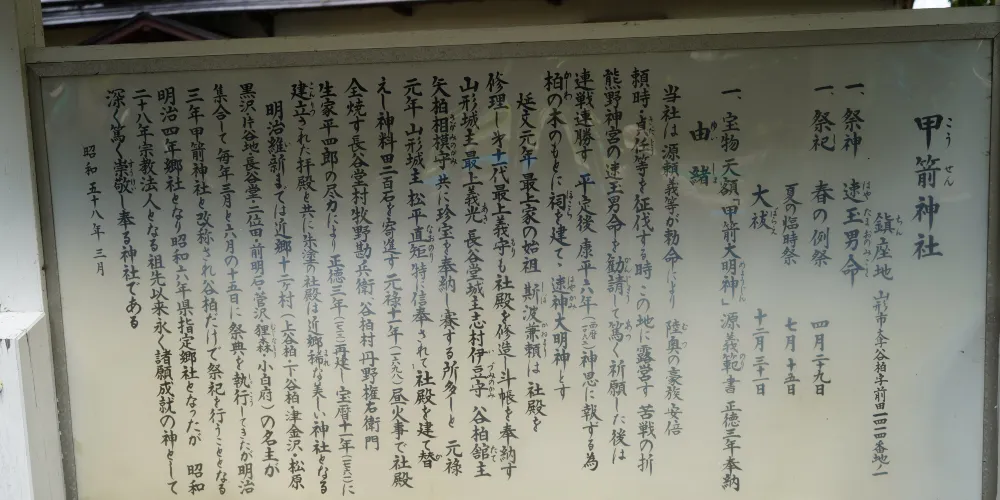 甲箭神社
こうせん
鎮座地 山形市大字谷柏字前田一四一四番地ノ一
一、祭神 速玉男命
一、祭祀 春の例祭 四月二十九日
夏の臨時祭 七月十五日
大祓 十二月三十一日
一、宝物 天額「甲箭大明神」源義範書 正徳三年奉納
由緒
当社は源頼義等が勅命により 陸奥の豪族安倍
頼時・貞任等を征伐する時 この地に露営す 苦戦の折
熊野神宮の速玉男命を勧請して篤く祈願した後は
連戦連勝す 平定後 康平六年 神恩に報する為
柏の木のもとに祠を建て、速神大明神とす
延文元年 最上家の始祖 斯波兼頼は 社殿を
修理し 才十一代最上義守も社殿を修造 斗帳を奉納す
山形城主最上義光 長谷堂城主志村伊豆守 谷柏館主
矢柏相模守 共に珍宝を奉納し 賽する所多しと 元禄
元年 山形城主 松平直矩特に信奉されて 社殿を建て替
えし 神料田二百石を寄進す 元禄十一年(一六九八)昼火事で社殿
全焼す 長谷堂村牧野勘兵衛 谷柏村 丹野権右衛門
生家平四郎の尽力により 正徳三年 再建 宝暦十一年 に
建立された拝殿と共に朱塗の社殿は近郷稀な美しい神社となる
明治維新までは近郷十二ヶ村(上谷柏 下谷柏 津金沢・松原
黒沢・片谷地・長谷堂・二位田・前明石・菅沢 狸森 小白府)の名主が
集合して毎年三月と六月の十五日に祭典を執行してきたが明治
三年甲箭神社と改称され谷柏だけで祭祀を行うこととなる
明治四年郷社となり昭和六年県指定郷社となったが 昭和
二十八年宗教法人となる 祖先以来永く諸願成就の神として
深く篤く崇敬し奉る神社である
昭和五十八年 三月